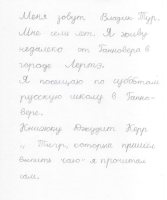 Меня зовут Влади Тур.
Мне семь лет. Я живу
недалеко от Ганновера в
городе Лертэ.
Я посещаю по субботам
русскую школу в Ганно-
вере.
Книжку Джудит Керр
о Тигре, который пришёл
выпить чаю - я прочитал
сам.